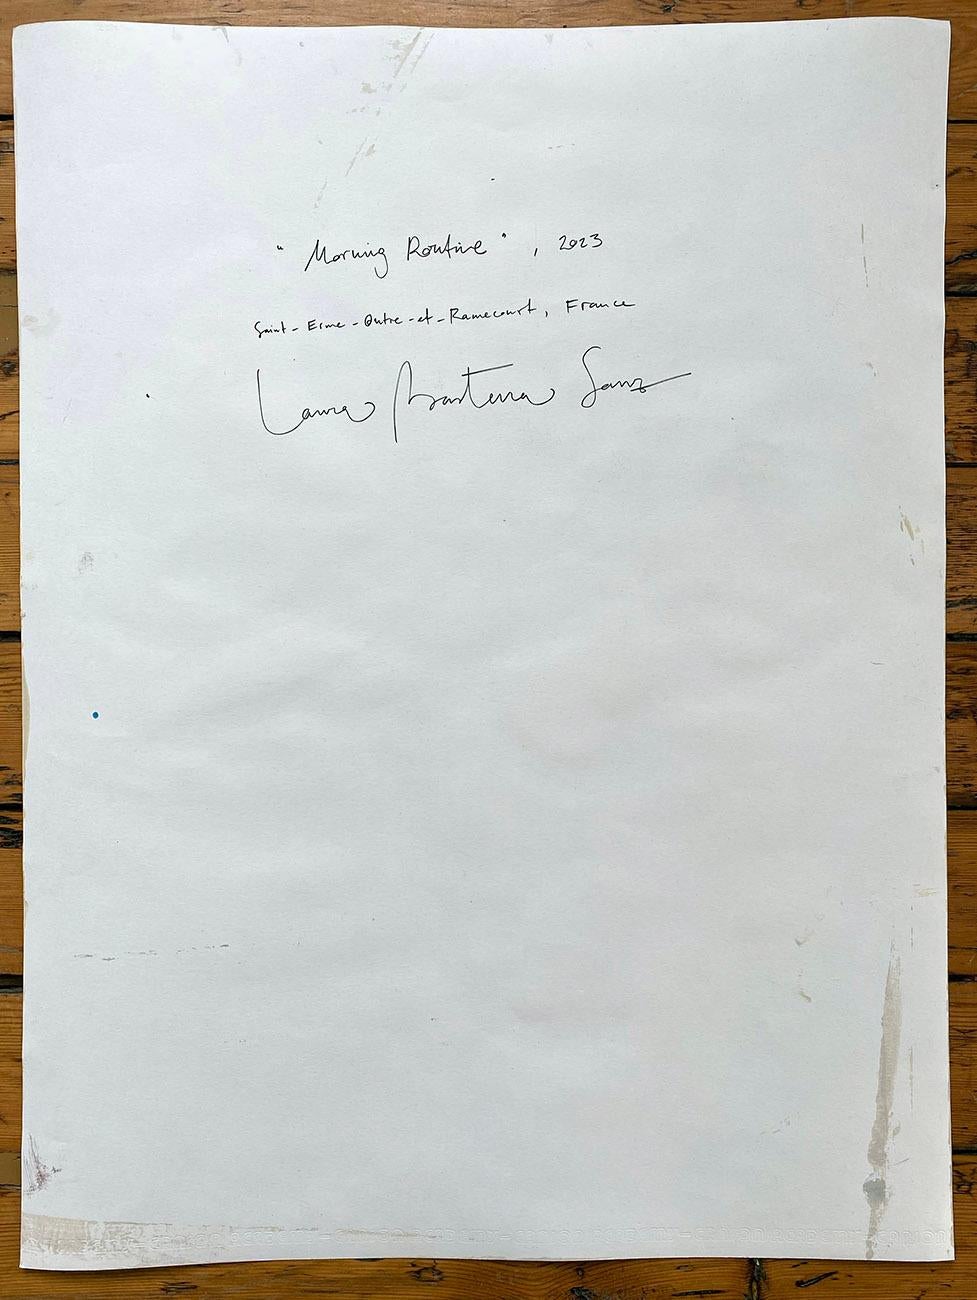 "Morning Routine", 2023
Saint-Erme-Outre-et-Ramecourt, France
Laura Basterra Sanz